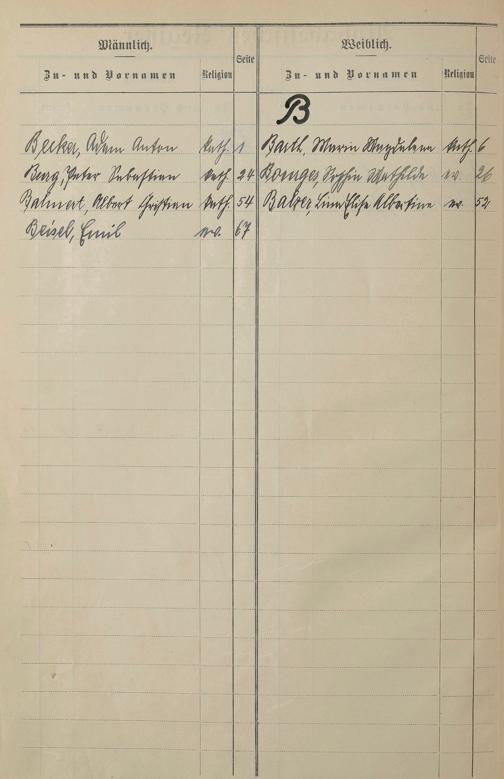 Männlich.
Zu- und Vornamen
Religion
Seite
Becker, Adam Anton kath. 1
Berg, Peter Sebastian kath. 24
Balmert, Albert Christian kath. 54
Beisel, Emil ev. 67
Weiblich.
Zu- und Vornamen
Religion
Seite
B
Barth, Maria Magdalena kath. 6
Sophie Mathilde ev. 26
Balzer, Lina Elise Albertine ev. 52